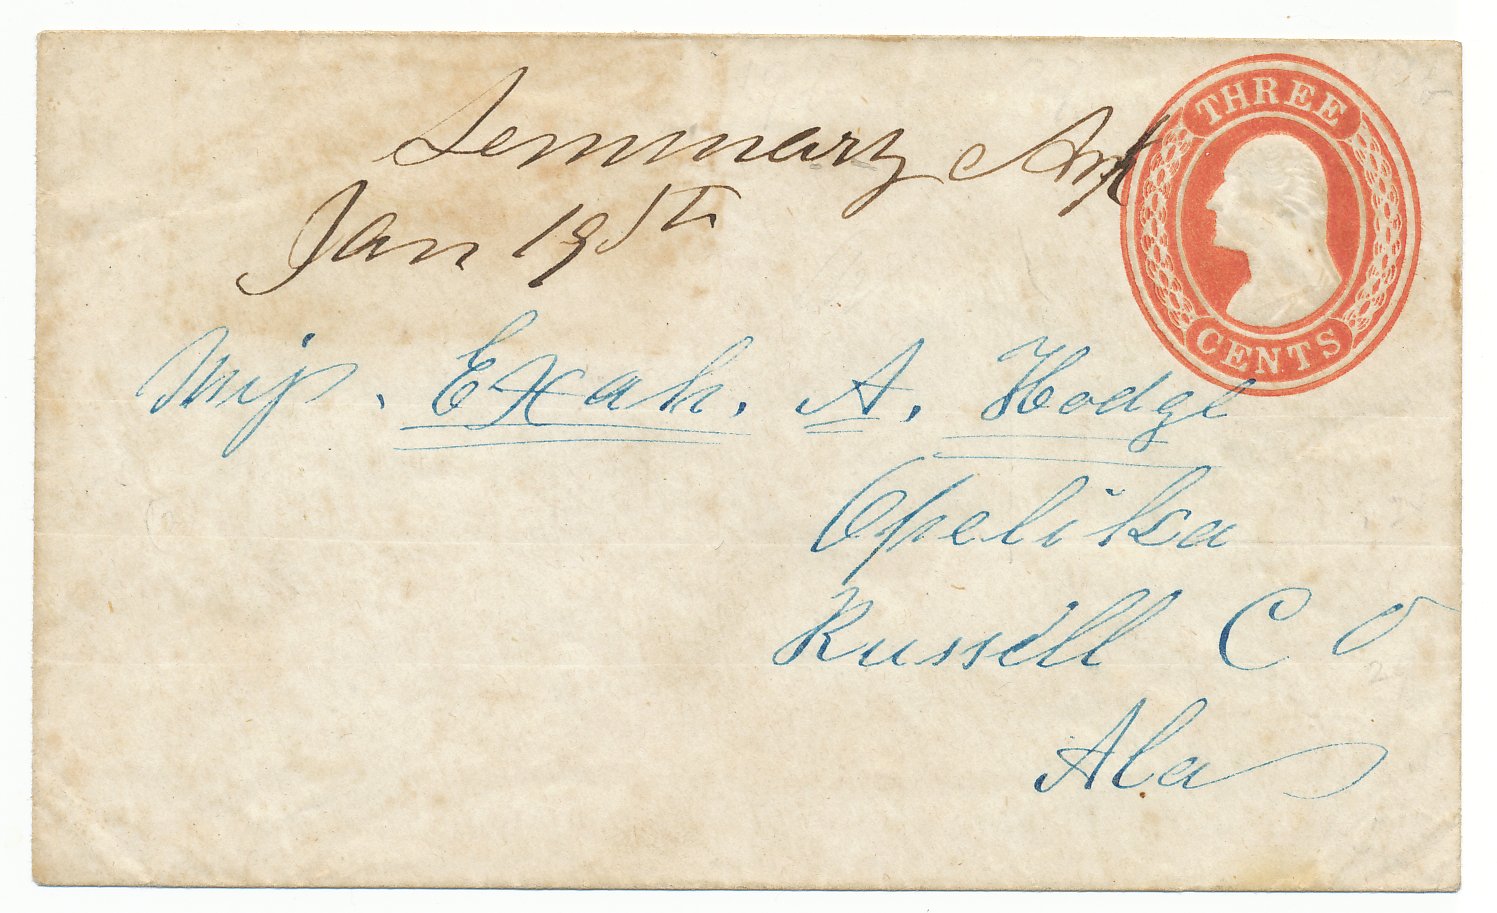 Semmary Ark
Jan 19 5th
THREE
CENTS
Miss. Exah. A. Hodge
Opelika
Russell CO
Ala